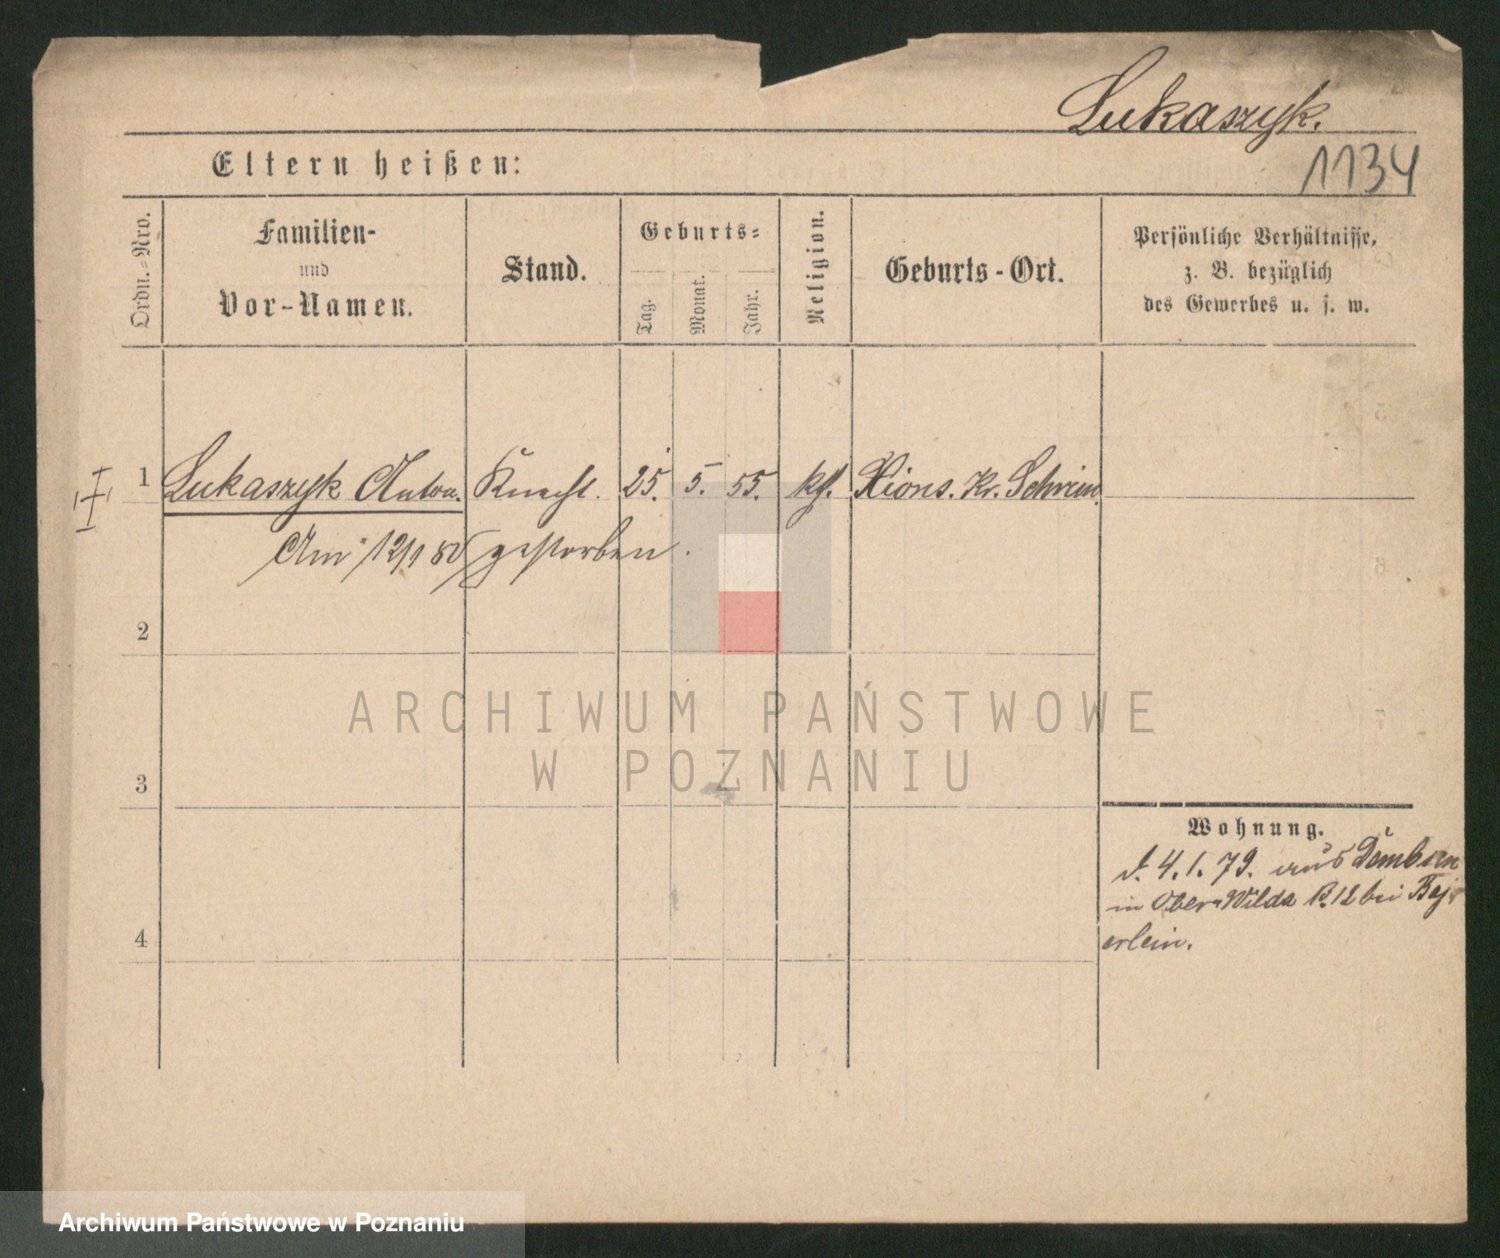 Lukaszyk.
1134
Eltern heißen:
Ordn.-Nro.
Familien-
und
Vor-Namen.
Stand.
Geburts-
Tag.
Monat.
Jahr.
Religion.
Geburts-Ort.
Persönliche Verhältnisse,
z. B. bezüglich
des Gewerbes u. s. w.
1 Lukaszyk Anton. Knecht. 25. 5. 55. kth. Xions. Kr. Schrim.
Am 12/1 80 gestorben.
2
3
4
Wohnung.
d. 4.1.79. aus Dembsen
in Ober-Wilda 12 bei Baj-
erlein.
ARCHIWUM PAŃSTWOWE
W POZNANIU
Archiwum Państwowe w Poznaniu